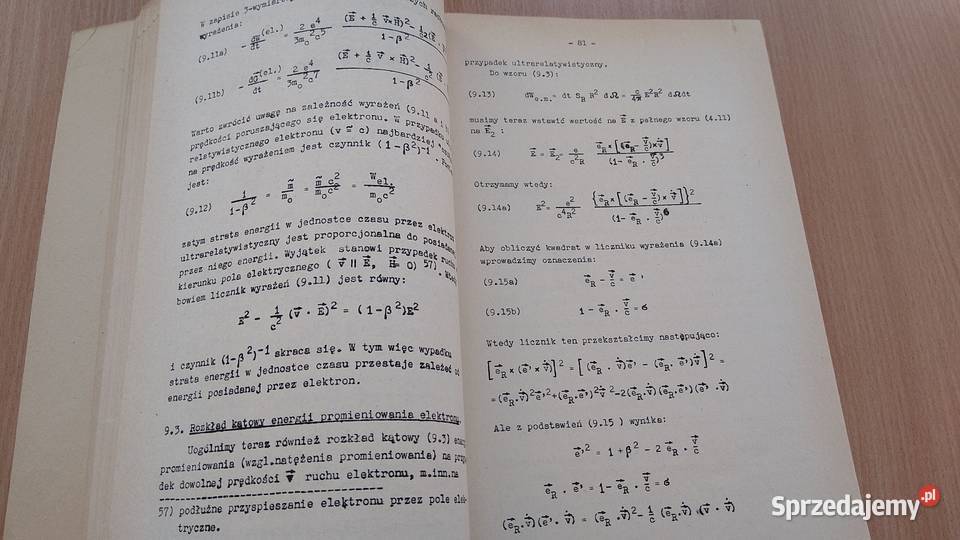 W zapisie 3-wymiarowym
wyrażenia:
(9.11a) - dW/dt (el.) = 2 e⁴ / 3m₀²c⁵ (E⃗ + 1/c v⃗×H⃗)² - 1/c² (E⃗ . / 1-β²
(9.11b) - dG⃗/dt (el.) = 2 e⁴ / 3m₀²c⁷ (E⃗ + 1/c v⃗ × H⃗)² - 1/c² (E⃗ / 1-β²
Warto zwrócić uwagę na zależność wyrażeń (9.11 a i
prędkości poruszającego się elektronu. W przypadku
relatywistycznego elektronu (v ≅ c) najbardziej
na prędkość wyrażeniem jest czynnik (1-β²)⁻¹.
jest:
(9.12) 1/1-β² = m̃/m₀ = m̃ c²/m₀c² = Wel./m₀c²
zatem strata energii w jednostce czasu przez elektron
ultrarelatywistyczny jest proporcjonalna do
przez niego energii. Wyjątek stanowi przypadek ruchu
kierunku pola elektrycznego ( v⃗ ∥ E⃗, H⃗= 0) 57).
bowiem licznik wyrażeń (9.11) jest równy:
E² - 1/c² (v⃗ · E⃗)² = (1-β²)E²
i czynnik (1-β²)⁻¹ skraca się. W tym więc wypadku
strata energii w jednostce czasu przestaje zależeć od
energii posiadanej przez elektron.
9.3. Rozkład kątowy energii promieniowania elektronu.
Uogólnimy teraz również rozkład kątowy (9.3)
promieniowania (wzgl.natężenia promieniowania) na
dek dowolnej prędkości v⃗ ruchu elektronu, m.inn.na
57) podłużne przyspieszanie elektronu przez pole elek-
tryczne.
- 81 -
przypadek ultrarelatywistyczny.
Do wzoru (9.3):
(9.13) dWe.m. = dt SR R² dΩ = c/4π E²R² dΩdt
musimy teraz wstawić wartość na E⃗ z pełnego wzoru (4.11)
na E⃗₂ :
(9.14) E⃗ = E⃗₂ = e/c²R e⃗R×[(e⃗R - v⃗/c)×v̇⃗]/(1- e⃗R . v⃗/c)³
Otrzymamy wtedy:
(9.14a) E²= e²/c⁴R² {e⃗R×[(e⃗R - v⃗/c)× v̇⃗]}²/(1- e⃗R . v⃗/c)⁶
Aby obliczyć kwadrat w liczniku wyrażenia (9.14a)
wprowadzimy oznaczenia:
(9.15a) e⃗R - v⃗/c = e⃗ '
(9.15b) 1 - e⃗R . v⃗/c = σ
Wtedy licznik ten przekształcimy następująco:
[e⃗R × (e⃗' × v̇⃗)]² = [(e⃗R . v̇⃗)e⃗' - (e⃗R . e⃗')v̇⃗]² =
=(e⃗R.v̇⃗)²e⃗'²+(e⃗R.e⃗')²v̇⃗² -2(e⃗R.v̇⃗)(e⃗R.e⃗')(e⃗' .v̇⃗)
Ale z podstawień (9.15 ) wynika:
e⃗'² = 1+β² - 2 e⃗R . v⃗/c
e⃗R . e⃗' = 1- e⃗R . v⃗/c = σ
(e⃗R.v̇⃗)(e⃗' . v̇⃗) = (e⃗R .v̇⃗)²- 1/c (e⃗R.v̇⃗) (v⃗ . v̇⃗)
Sprzedajemy.pl